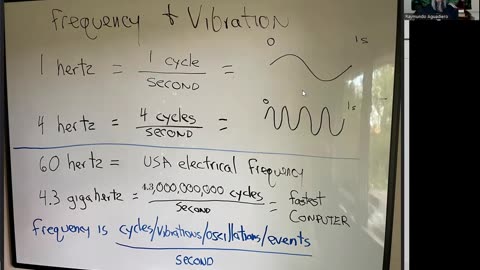 Raymundo Jiguadiero
Frequency & Vibration
1 hertz = 1 cycle / second = 0 1s
4 hertz = 4 cycles / second = 0 1s
60 hertz = USA electrical frequency
4.3 gigahertz = 4.3,000,000,000 cycles / second = fastest COMPUTER
frequency is cycles/vibrations/oscillations/events / second